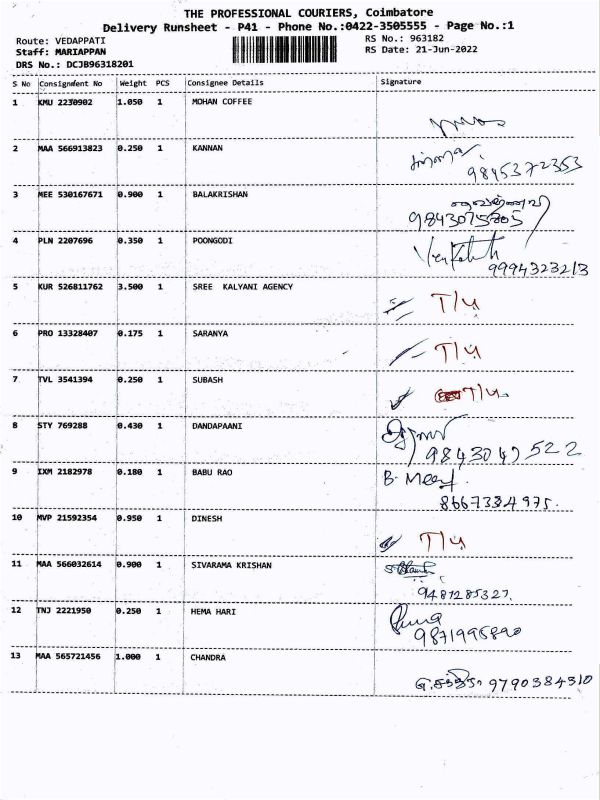 THE PROFESSIONAL COURIERS, Coimbatore
Delivery Runsheet - P41 - Phone No.:0422-3505555 - Page No.:1
Route: VEDAPPATI RS No.: 963182
Staff: MARIAPPAN RS Date: 21-Jun-2022
DRS No.: DCJB96318201
S No Consignment No Weight PCS Consignee Details Signature
1 KMU 2230902 1.050 1 MOHAN COFFEE
2 MAA 566913823 0.250 1 KANNAN
9845372353
3 MEE 530167671 0.900 1 BALAKRISHAN
4 PLN 2207696 0.350 1 POONGODI
9994323213
5 KUR 526811762 3.500 1 SREE KALYANI AGENCY T/U
6 PRO 13328407 0.175 1 SARANYA T/U
7 TVL 3541394 0.250 1 SUBASH T/U
8 STY 769288 0.430 1 DANDAPAANI
9 IXM 2182978 0.180 1 BABU RAO
8667334975.
10 MVP 21592354 0.950 1 DINESH T/U
11 MAA 566032614 0.900 1 SIVARAMA KRISHAN
9487285327.
12 TNJ 2221950 0.250 1 HEMA HARI
9871995890
13 MAA 565721456 1.000 1 CHANDRA
9790384310